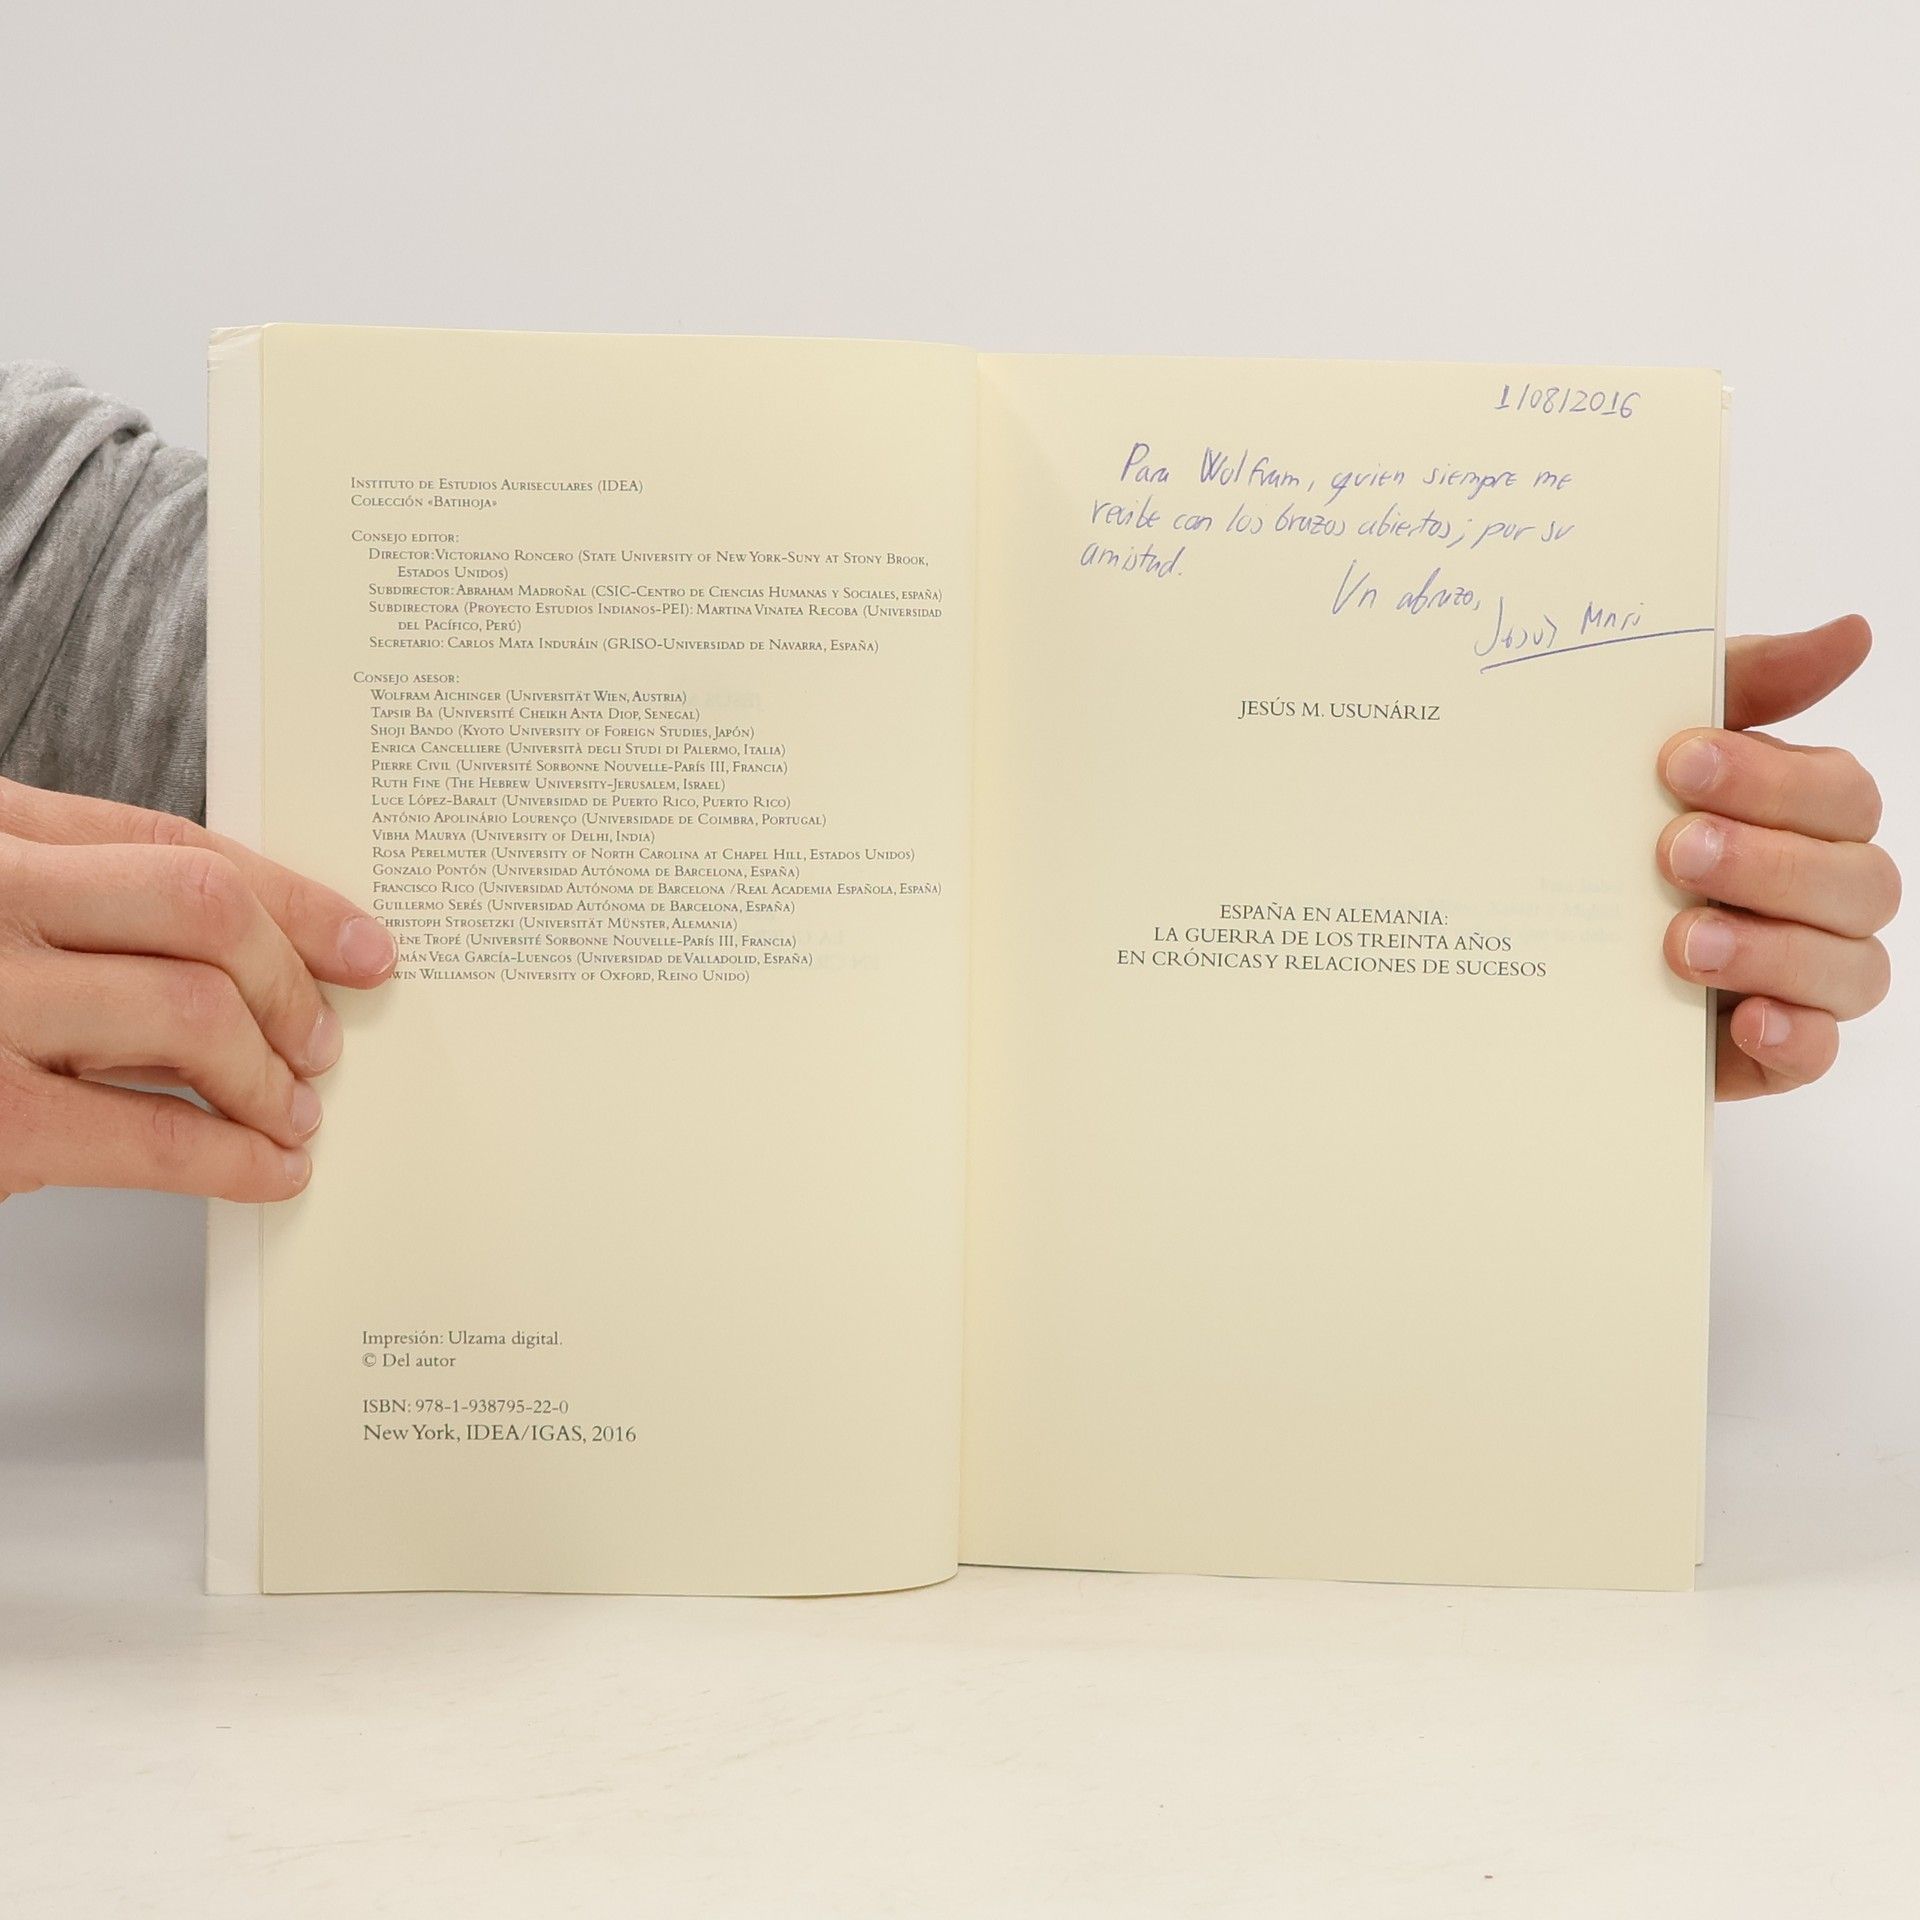 INSTITUTO DE ESTUDIOS AURISECULARES (IDEA)
COLECCIÓN «BATIHOJA»
CONSEJO EDITOR:
DIRECTOR: VICTORIANO RONCERO (STATE UNIVERSITY OF NEW YORK-SUNY AT STONY BROOK,
ESTADOS UNIDOS)
SUBDIRECTOR: ABRAHAM MADROÑAL (CSIC-CENTRO DE CIENCIAS HUMANAS Y SOCIALES, ESPAÑA)
SUBDIRECTORA (PROYECTO ESTUDIOS INDIANOS-PEI): MARTINA VINATEA RECOBA (UNIVERSIDAD
DEL PACÍFICO, PERÚ)
SECRETARIO: CARLOS MATA INDURÁIN (GRISO-UNIVERSIDAD DE NAVARRA, ESPAÑA)
CONSEJO ASESOR:
WOLFRAM AICHINGER (UNIVERSITÄT WIEN, AUSTRIA)
TAPSIR BA (UNIVERSITÉ CHEIKH ANTA DIOP, SENEGAL)
SHOJI BANDO (KYOTO UNIVERSITY OF FOREIGN STUDIES, JAPÓN)
ENRICA CANCELLIERE (UNIVERSITÀ DEGLI STUDI DI PALERMO, ITALIA)
PIERRE CIVIL (UNIVERSITÉ SORBONNE NOUVELLE-PARÍS III, FRANCIA)
RUTH FINE (THE HEBREW UNIVERSITY-JERUSALEM, ISRAEL)
LUCE LÓPEZ-BARALT (UNIVERSIDAD DE PUERTO RICO, PUERTO RICO)
ANTÓNIO APOLINÁRIO LOURENÇO (UNIVERSIDADE DE COIMBRA, PORTUGAL)
VIBHA MAURYA (UNIVERSITY OF DELHI, INDIA)
ROSA PERELMUTER (UNIVERSITY OF NORTH CAROLINA AT CHAPEL HILL, ESTADOS UNIDOS)
GONZALO PONTÓN (UNIVERSIDAD AUTÓNOMA DE BARCELONA, ESPAÑA)
FRANCISCO RICO (UNIVERSIDAD AUTÓNOMA DE BARCELONA /REAL ACADEMIA ESPAÑOLA, ESPAÑA)
GUILLERMO SERÉS (UNIVERSIDAD AUTÓNOMA DE BARCELONA, ESPAÑA)
CHRISTOPH STROSETZKI (UNIVERSITÄT MÜNSTER, ALEMANIA)
TROPÉ (UNIVERSITÉ SORBONNE NOUVELLE-PARÍS III, FRANCIA)
VEGA GARCÍA-LUENGOS (UNIVERSIDAD DE VALLADOLID, ESPAÑA)
WILLIAMSON (UNIVERSITY OF OXFORD, REINO UNIDO)
Impresión: Ulzama digital.
© Del autor
ISBN: 978-1-938795-22-0
New York, IDEA/IGAS, 2016
1/08/2016
Para Wolfram, quien siempre me
recibe con los brazos abiertos; por su
amistad.
Un abrazo,
Jesús Mari
JESÚS M. USUNÁRIZ
ESPAÑA EN ALEMANIA:
LA GUERRA DE LOS TREINTA AÑOS
EN CRÓNICAS Y RELACIONES DE SUCESOS